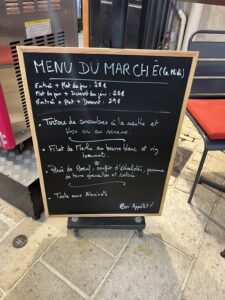 MENU DU MARCHÉ (le Midi)
Entrée + Plat du jour : 25€
Plat du jour + Dessert du jour : 25€
Entrée + Plat + Dessert : 29€
Tartare de concombres à la menthe et
bleu ou au sésame.
Filet de Merlu au beurre blanc et riz
basmati.
ou
Pavé de Boeuf, confit d'échalotes, pommes
de terre grenailles et salade
Tarte aux Abricots
Bon Appétit !